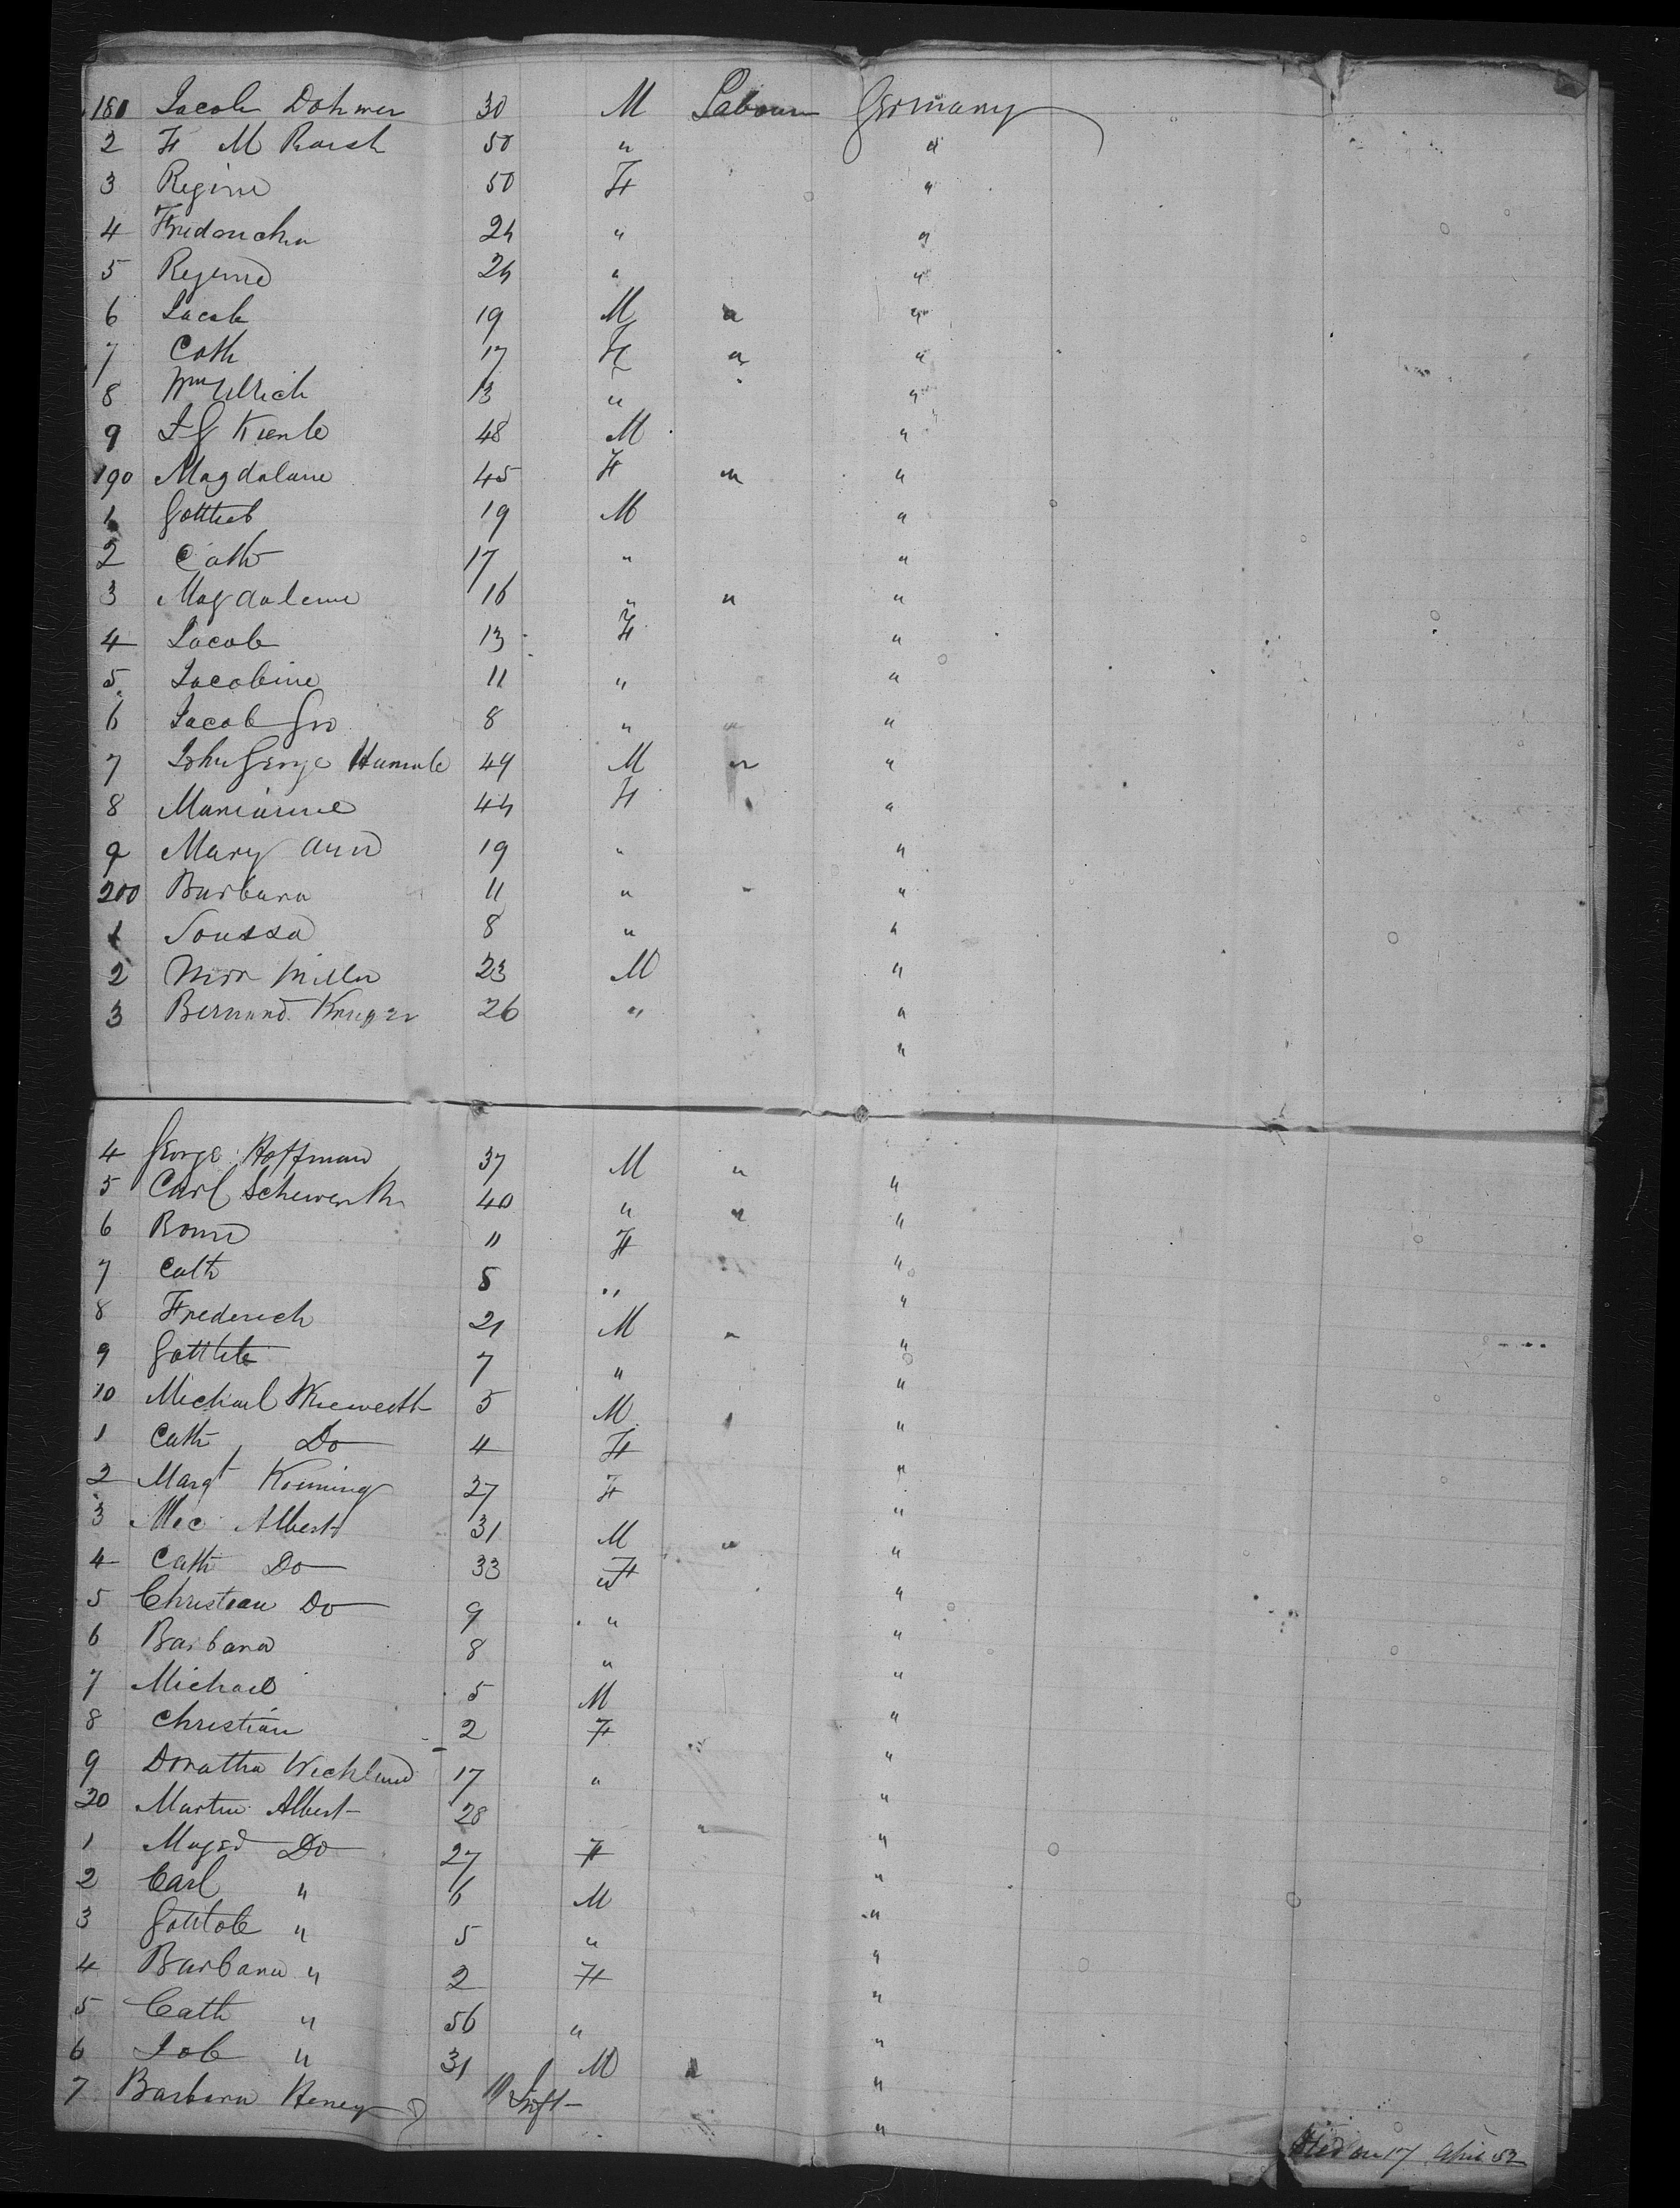 180 Jacob Dohmer 30 M Labourer Germany
2 F M Raish 50 " "
3 Regine 50 F "
4 24 " "
5 Regine 24 " "
6 Jacob 19 M " "
7 Cath 17 F " "
8 Wm Ulrich 13 " "
9 J G Kienle 48 M "
190 Magdalane 45 F " "
1 Gottlieb 19 M "
2 Cath 17 " "
3 Magdalene 16 " " "
4 Jacob 13 F "
5 Jacobine 11 " "
6 Jacob Geo 8 " "
7 John George Humule 49 M " "
8 Marianne 44 F "
9 Mary Ann 19 " "
200 Barbara 11 " "
1 8 " "
2 Miller 23 M "
3 Bernard Kruger 26 " "
"
4 George Hoffman 37 M " "
5 Carl 40 " " "
6 11 F "
7 Cath 5 " "
8 Frederich 21 M " "
9 Gottlieb 7 " "
10 Michael 5 M "
1 Cath Do 4 F "
2 Margt 27 F "
3 Mic Albert 31 M " "
4 Cath Do 33 F "
5 Christian Do 9 " "
6 Barbara 8 " "
7 Michael 5 M "
8 Christian 2 F "
9 Doratha 17 " "
20 Martin Albert 28 " "
1 Do 27 F "
2 Carl " 6 M "
3 " 5 " "
4 Barbara " 2 F "
5 Cath " 56 " "
6 Job " 31 M " "
7 Barbara Heney "
17 April 52